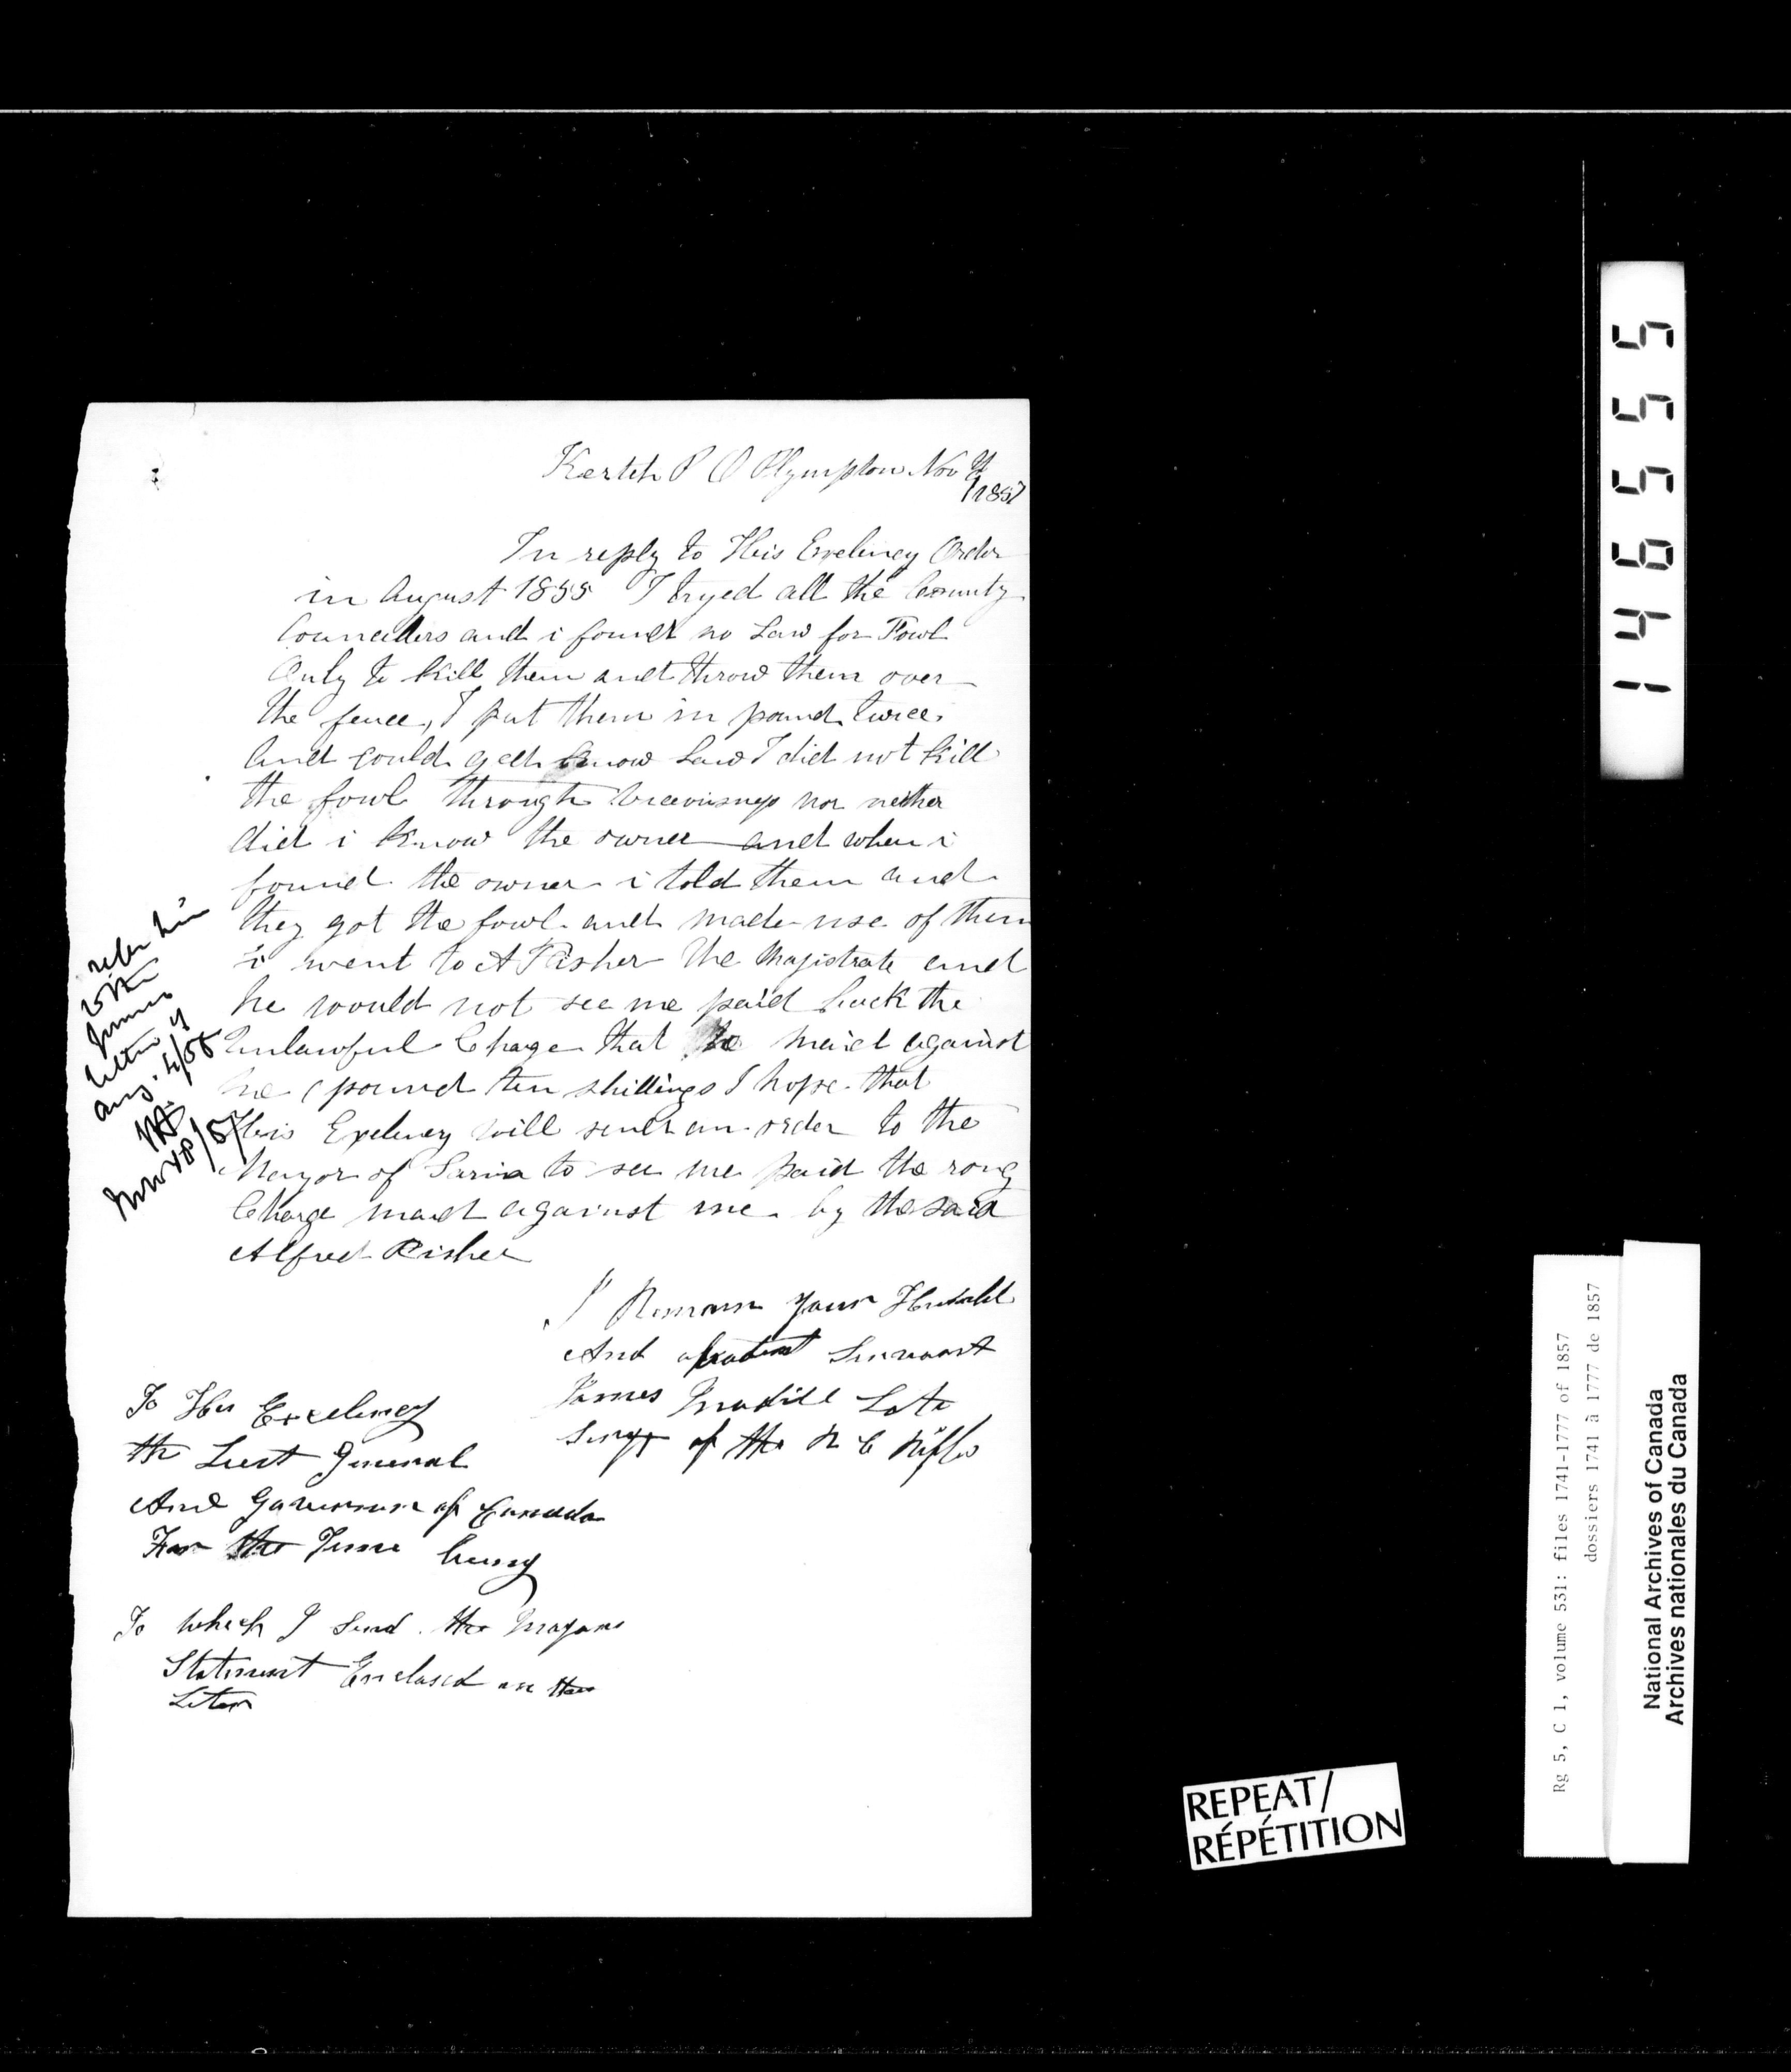 Kertch P O Plympton Nov
1857
In reply to His Exceliney Order
in August 1855 I tryed all the County
Councellers and i found no Law for Fowl
Only to kill them and throw them over
the fence, I put them in pound twice
And could gett know Law I did not kill
the fowl through nor neither
did i know the owner and when i
found the owner i told them and
they got the fowl and made use of them
i went to A Fisher the Magistrate and
he would not see me paid back the
unlawful Chage that he maid against
me 1 pound ten shillings I hope that
His Exeliney will send an order to the
Mayor of Sarnia to see me paid the rong
Charge maed against me by the said
Alfred Fisher
I Remain your Humbel
And obedient Servant
James Madill Late
Sergt of the R C Rifles
To His Exceliney
the Lieut General
And Governor of Canada
For the Time being
To which I Send the Mayors
Statement Enclosed in the
Leter
refer him
to the
former
letter of
Aug. 4/55
Nov 18/57
146555
REPEAT/
RÉPÉTITION
Rg 5, C 1, volume 531: files 1741-1777 of 1857
dossiers 1741 à 1777 de 1857
National Archives of Canada
Archives nationales du Canada